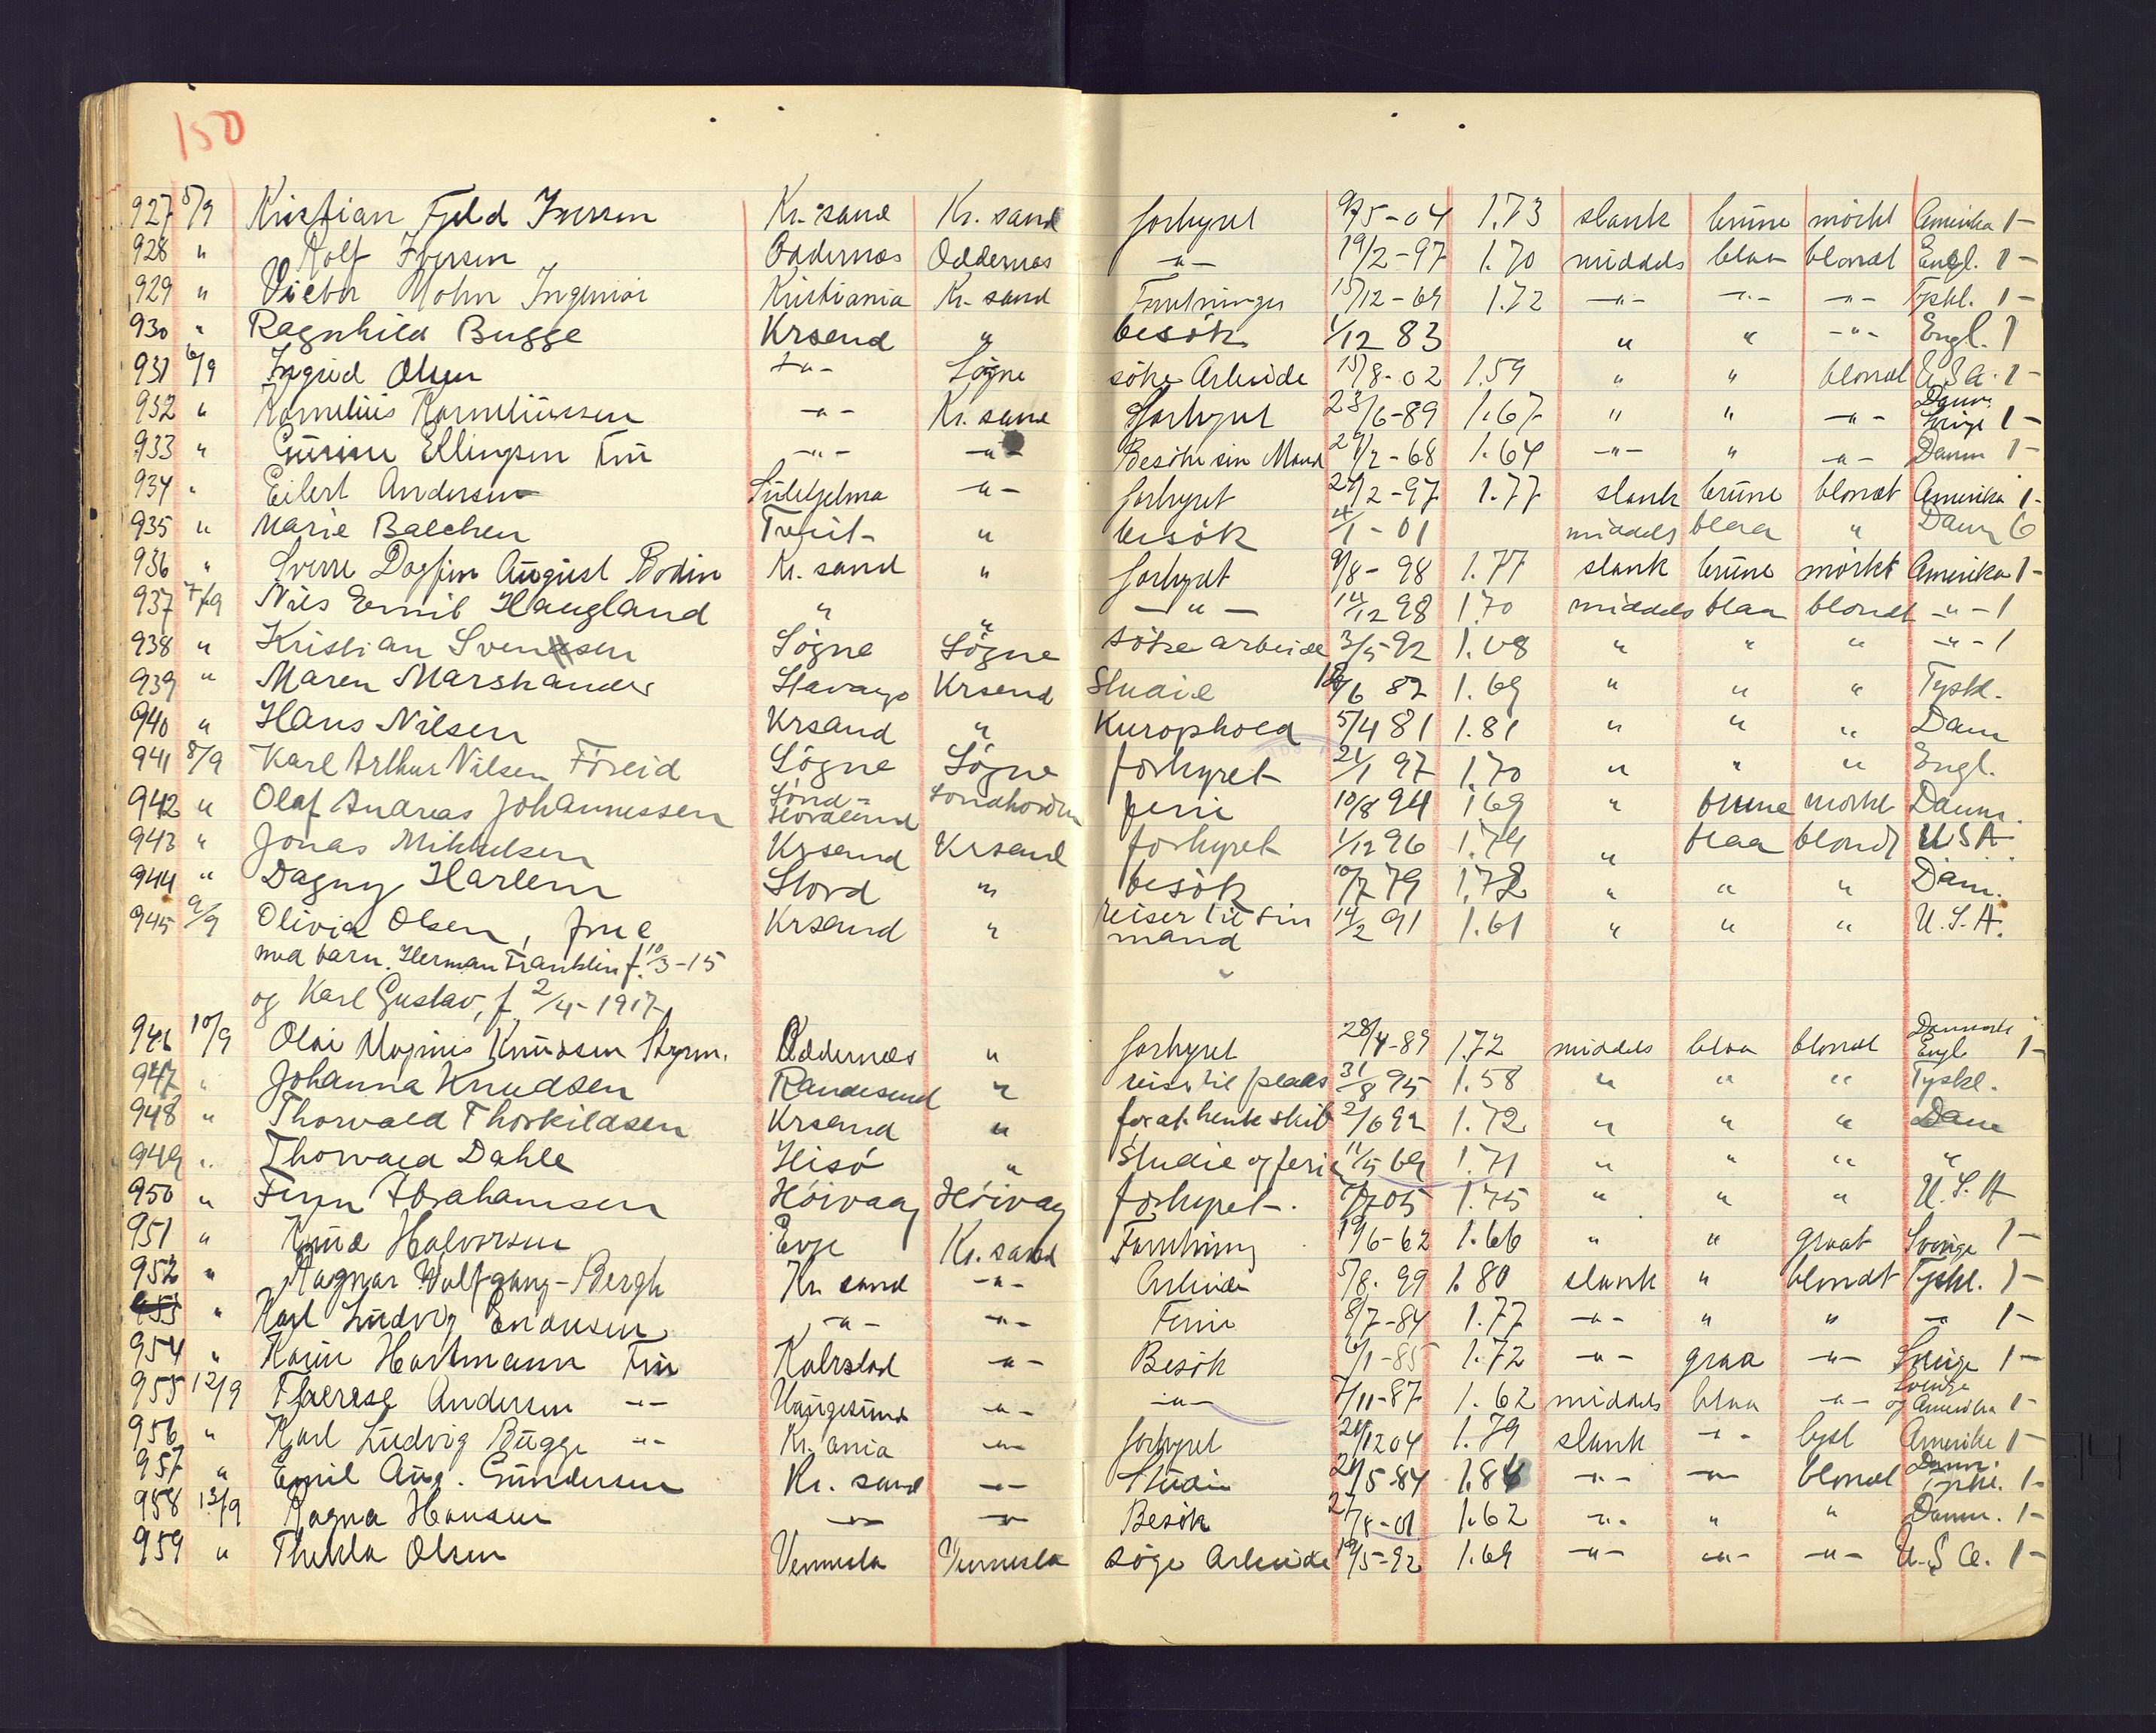 150
927 5/9 Kristian Fjeld Iversen Kr. sand Kr. sand forhyret 9/5-04 1.73 slank brune mörkt Amerika 1-
928 " Rolf Iversen Oddernes Oddernes -"- 19/2-97 1.70 middels blaa blondt Engl. 1-
929 " Victor Mohn Ingeniör Kristiania Kr. sand Forretninger 15/12-69 1.72 -"- -"- -"- Tyskl. 1-
930 " Ragnhild Bugge Krsand " besök 1/12 83 " " -"- Engl. 1
931 6/9 Ingrid Olsen -"- Sögne söke Arbeide 15/8-02 1.59 " " blondt U.S.A. 1-
932 " Kornelius Korneliussen -"- Kr. sand Forhyret 23/6-89 1.67 " " -"- Danm. Sverige 1-
933 " Gurine Ellingsen Fru -"- -"- Besöke sin Mand 29/2-68 1.64 -"- " -"- Danm 1-
934 " Eilert Andersen Sulitjelma -"- forhyret 24/2-97 1.77 slank brune blondt Amerika 1-
935 " Marie Balchen Tveit- " besök 4/1-01 middels blaa " Danm 6
936 " Sverre Dagfin August Bodin Kr. sand " forhyret 9/8-98 1.77 slank brune mörkt Amerika 1-
937 7/9 Nils Emil Haugland " " -"- 14/12 98 1.70 middels blaa blondt -"- 1
938 " Kristian Svendsen Sögne Sögne söke arbeide 3/5-92 1.68 " " " -"- 1
939 " Maren Marshander Stavang. Krsand Studie 18/6 82 1.69 " " " Tyskl.
940 " Hans Nilsen Krsand " Kurophold 5/4 81 1.81 " " " Dam
941 8/9 Karl Arthur Nilsen Föreid Sögne Sögne forhyret 21/1 97 1.70 " " " Engl.
942 " Olaf Andreas Johannessen Sönd- Hordland Söndhordn ferie 10/8 94 1.69 " brune mörkt Danm.
943 " Jonas Mikkelsen Krsand Krsand forhyret 1/12 96 1.74 " blaa blondt USA
944 " Dagny Harlem Stord " besök 10/7 79 1.72 " " " Dam.
945 9/9 Olivia Olsen, frue Krsand " reiser til sin mand 14/2 91 1.61 " " " U.S.A.
med barn. Herman Franklin f. 10/3-15 "
og Karl Gustav, f. 2/4-1917
946 10/9 Olai Magnus Knudsen Styrm. Oddernes " forhyret 28/4-89 1.72 middels blaa blondt Danmark Engl 1-
947 " Johanna Knudsen Randesund " reise til plads 31/8 95 1.58 " " " Tyskl.
948 " Thorvald Thorkildsen Krsand " for at hente skib 2/6 92 1.72 " " " Dam
949 " Thorvald Dahle Hisö " Studie og ferie 11/5 69 1.71 " " " "
950 " Finn Abrahamsen Höivaag Höivaag forhyret. 7/7 05 1.75 " " " U.S.A
951 " Knud Halvorsen Evje Kr. sand Forretning 19/6-62 1.66 " " graat Sverige 1-
952 " Ragnar Wolfgang-Bergh Kr. sand -"- Arbeide 5/8. 99 1.80 slank " blondt Tyskl. 1-
953 " Karl Ludvig Enoksen -"- -"- Ferie 8/7-84 1.77 -"- " " -"- 1-
954 " Karin Hartmann Fru Kalvstad -"- Besök 6/1-85 1.72 -"- graa -"- Sverige 1-
955 12/9 Therese Andersen -"- Haugesund -"- -"- 7/11-87 1.62 middels blaa -"- Sverige og Amerika 1-
956 " Karl Ludvig Bugge -"- Kr. ania -"- forhyret 24/12 04 1.79 slank -"- lyst Amerika 1-
957 " Emil Aug. Gundersen Kr. sand -"- Studie 24/5-84 1.84 -"- -"- blondt Danm. Tyskl. 1-
958 13/9 Ragna Hansen -"- -"- Besök 27/8-01 1.62 -"- " " Danm. 1-
959 " Thekla Olsen Vennesla Vennesla söge Arbeide 19/5-92 1.69 -"- -"- -"- U.S.A. 1-